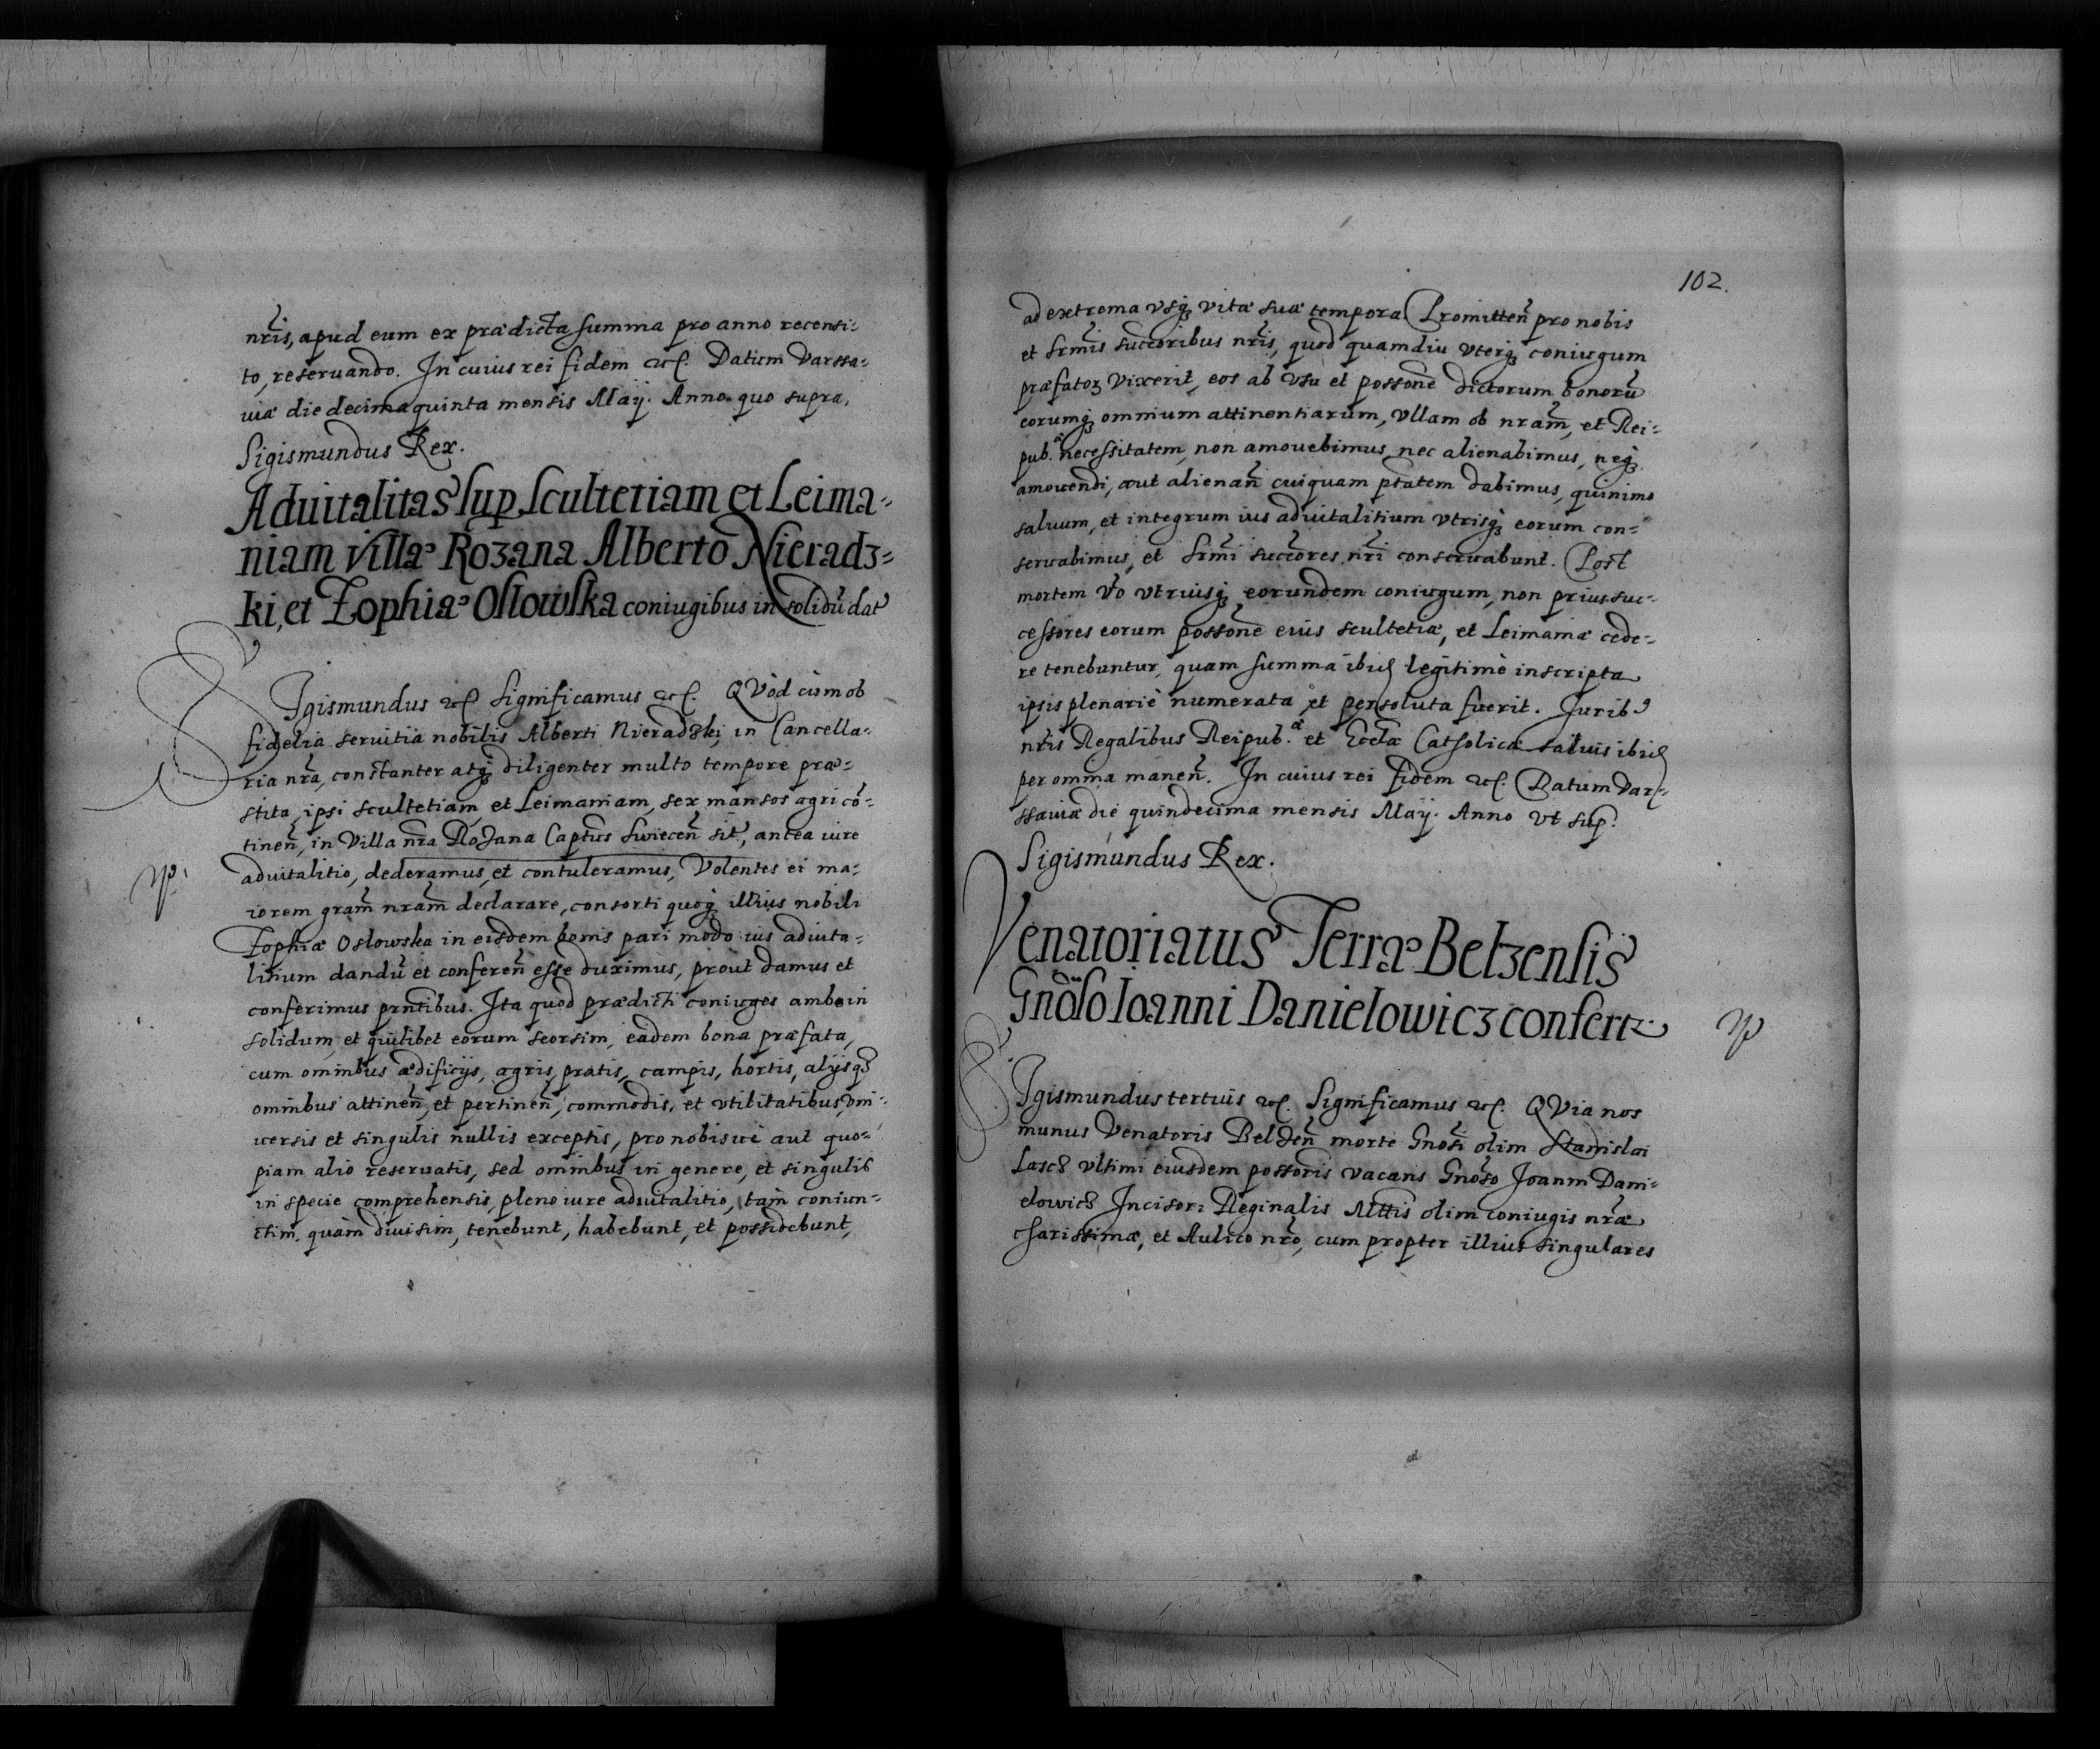 nr̃is, apud eum ex prædicta summa pro anno recensi-
to, reseruando. In cuius rei fidem etc. Datum Varssa-
uiæ die decima quinta mensis Maij. Anno quo supra.
Sigismundus Rex.
Aduitalitas sup Scultetiam et Leima-
niam villæ Rozana Alberto Nieradz-
ki, et Zophiæ Osłowska coniugibus in solidũ dat
SIgismundus etc. Significamus etc. QVòd cùm ob
fidelia seruitia nobilis Alberti Nieradzki, in Cancella-
ria nr̃a, constanter atq; diligenter multo tempore præ-
stita, ipsi scultetiam, et Leimaniam, sex mansos agri cõ-
tineñ, in Villa nr̃a Rozana Captus Swieceñ sit, antea iure
aduitalitio, dederamus, et contuleramus, Volentes ei ma-
iorem grãm nrãm declarare, consorti quoq; illius nobili
Zophiæ Osłowska in eisdem bonis pari modo ius aduita-
litium dandũ et confereñ esse duximus, prout damus et
conferimus prñtibus. Ita quod prædicti coniuges ambo in
solidum, et quilibet eorum seorsim, eadem bona præfata,
cum omnibus ædificijs, agris, pratis, campis, hortis, alijsq;
omnibus attineñ, et pertineñ, commodis, et vtilitatibus, vni-
uersis et singulis nullis exceptis, pro nobisue aut quo-
piam alio reseruatis, sed omnibus in genere, et singulis
in specie comprehensis, pleno iure aduitalitio, tam coniun-
ctim, quàm diuisim, tenebunt, habebunt, et possidebunt,
102.
ad extrema vsq; vitæ suæ tempora Promitteñ pro nobis
et Srm̃is succõribus nr̃is, quod quamdiu vterq; coniugum
præfatoꝝ vixerit, eos ab vsu et possõne dictorum bonorũ
eorumq; omnium attinentiarum, vllam ob nrãm, et Rei-
pub.æ necessitatem, non amouebimus, nec alienabimus, neq;
amouendi, aut alienañ cuiquam ptãtem dabimus, quinimo
saluum, et integrum ius aduitalitium vtrisq; eorum con-
seruabimus, et Srm̃i succõres nr̃i conseruabunt. Post
mortem võ vtriusq; eorundem coniugum, non prius suc-
cessores eorum possõne eius scultetiæ, et Leimaniæ cede-
re tenebuntur, quam summa ibid. legitimè inscripta
ipsis plenariè numerata et persoluta fuerit. Iurib9
nr̃is Regalibus Reipub.æ et Eccl̃æ Catholicæ saluis ibid.
per omnia maneñ. In cuius rei fidem etc. Datum Var-
ssauiæ die quindecima mensis Maij. Anno vt sup.
Sigismundus Rex.
Venatoriatus Terræ Belzensis
Gnõso Ioanni Danielowicz confertur
SIgismundus tertius etc. Significamus etc. QVia nos
munus Venatoris Belzeñ morte Gnõsi olim Stanislai
Lascz vltimi eiusdem possõris vacans Gnõso Joanni Dani-
elowicz Incisori Reginalis Mttis olim coniugis nr̃æ
charissimæ, et Aulico nrõ, cum propter illius singulares